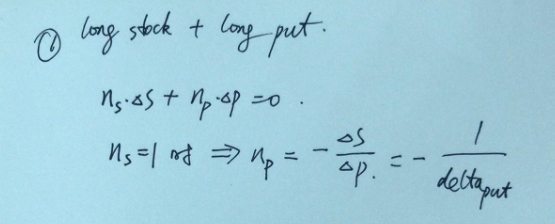 ① long stock + long put.
nₛ·ΔS + nₚ·ΔP = 0.
nₛ = 1 时 ⇒ nₚ = - ΔS/ΔP. = - 1/delta put